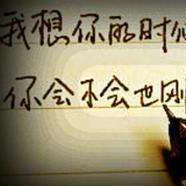 我想你的时候
你会不会也刚